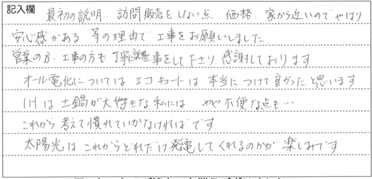 記入欄
最初の説明 訪問販売をしない点 価格 家から近いのでやはり
安心感がある 等の理由で工事をお願いしました
営業の方・工事の方も丁寧な仕事をして下さり 感謝しております
オール電化についてはエコキュートは本当につけて良かったと思います
IHは土鍋が大好きな私には やや不便な点も…
これから考えて慣れていかなければです
太陽光はこれからどれだけ発電してくれるのかが 楽しみです